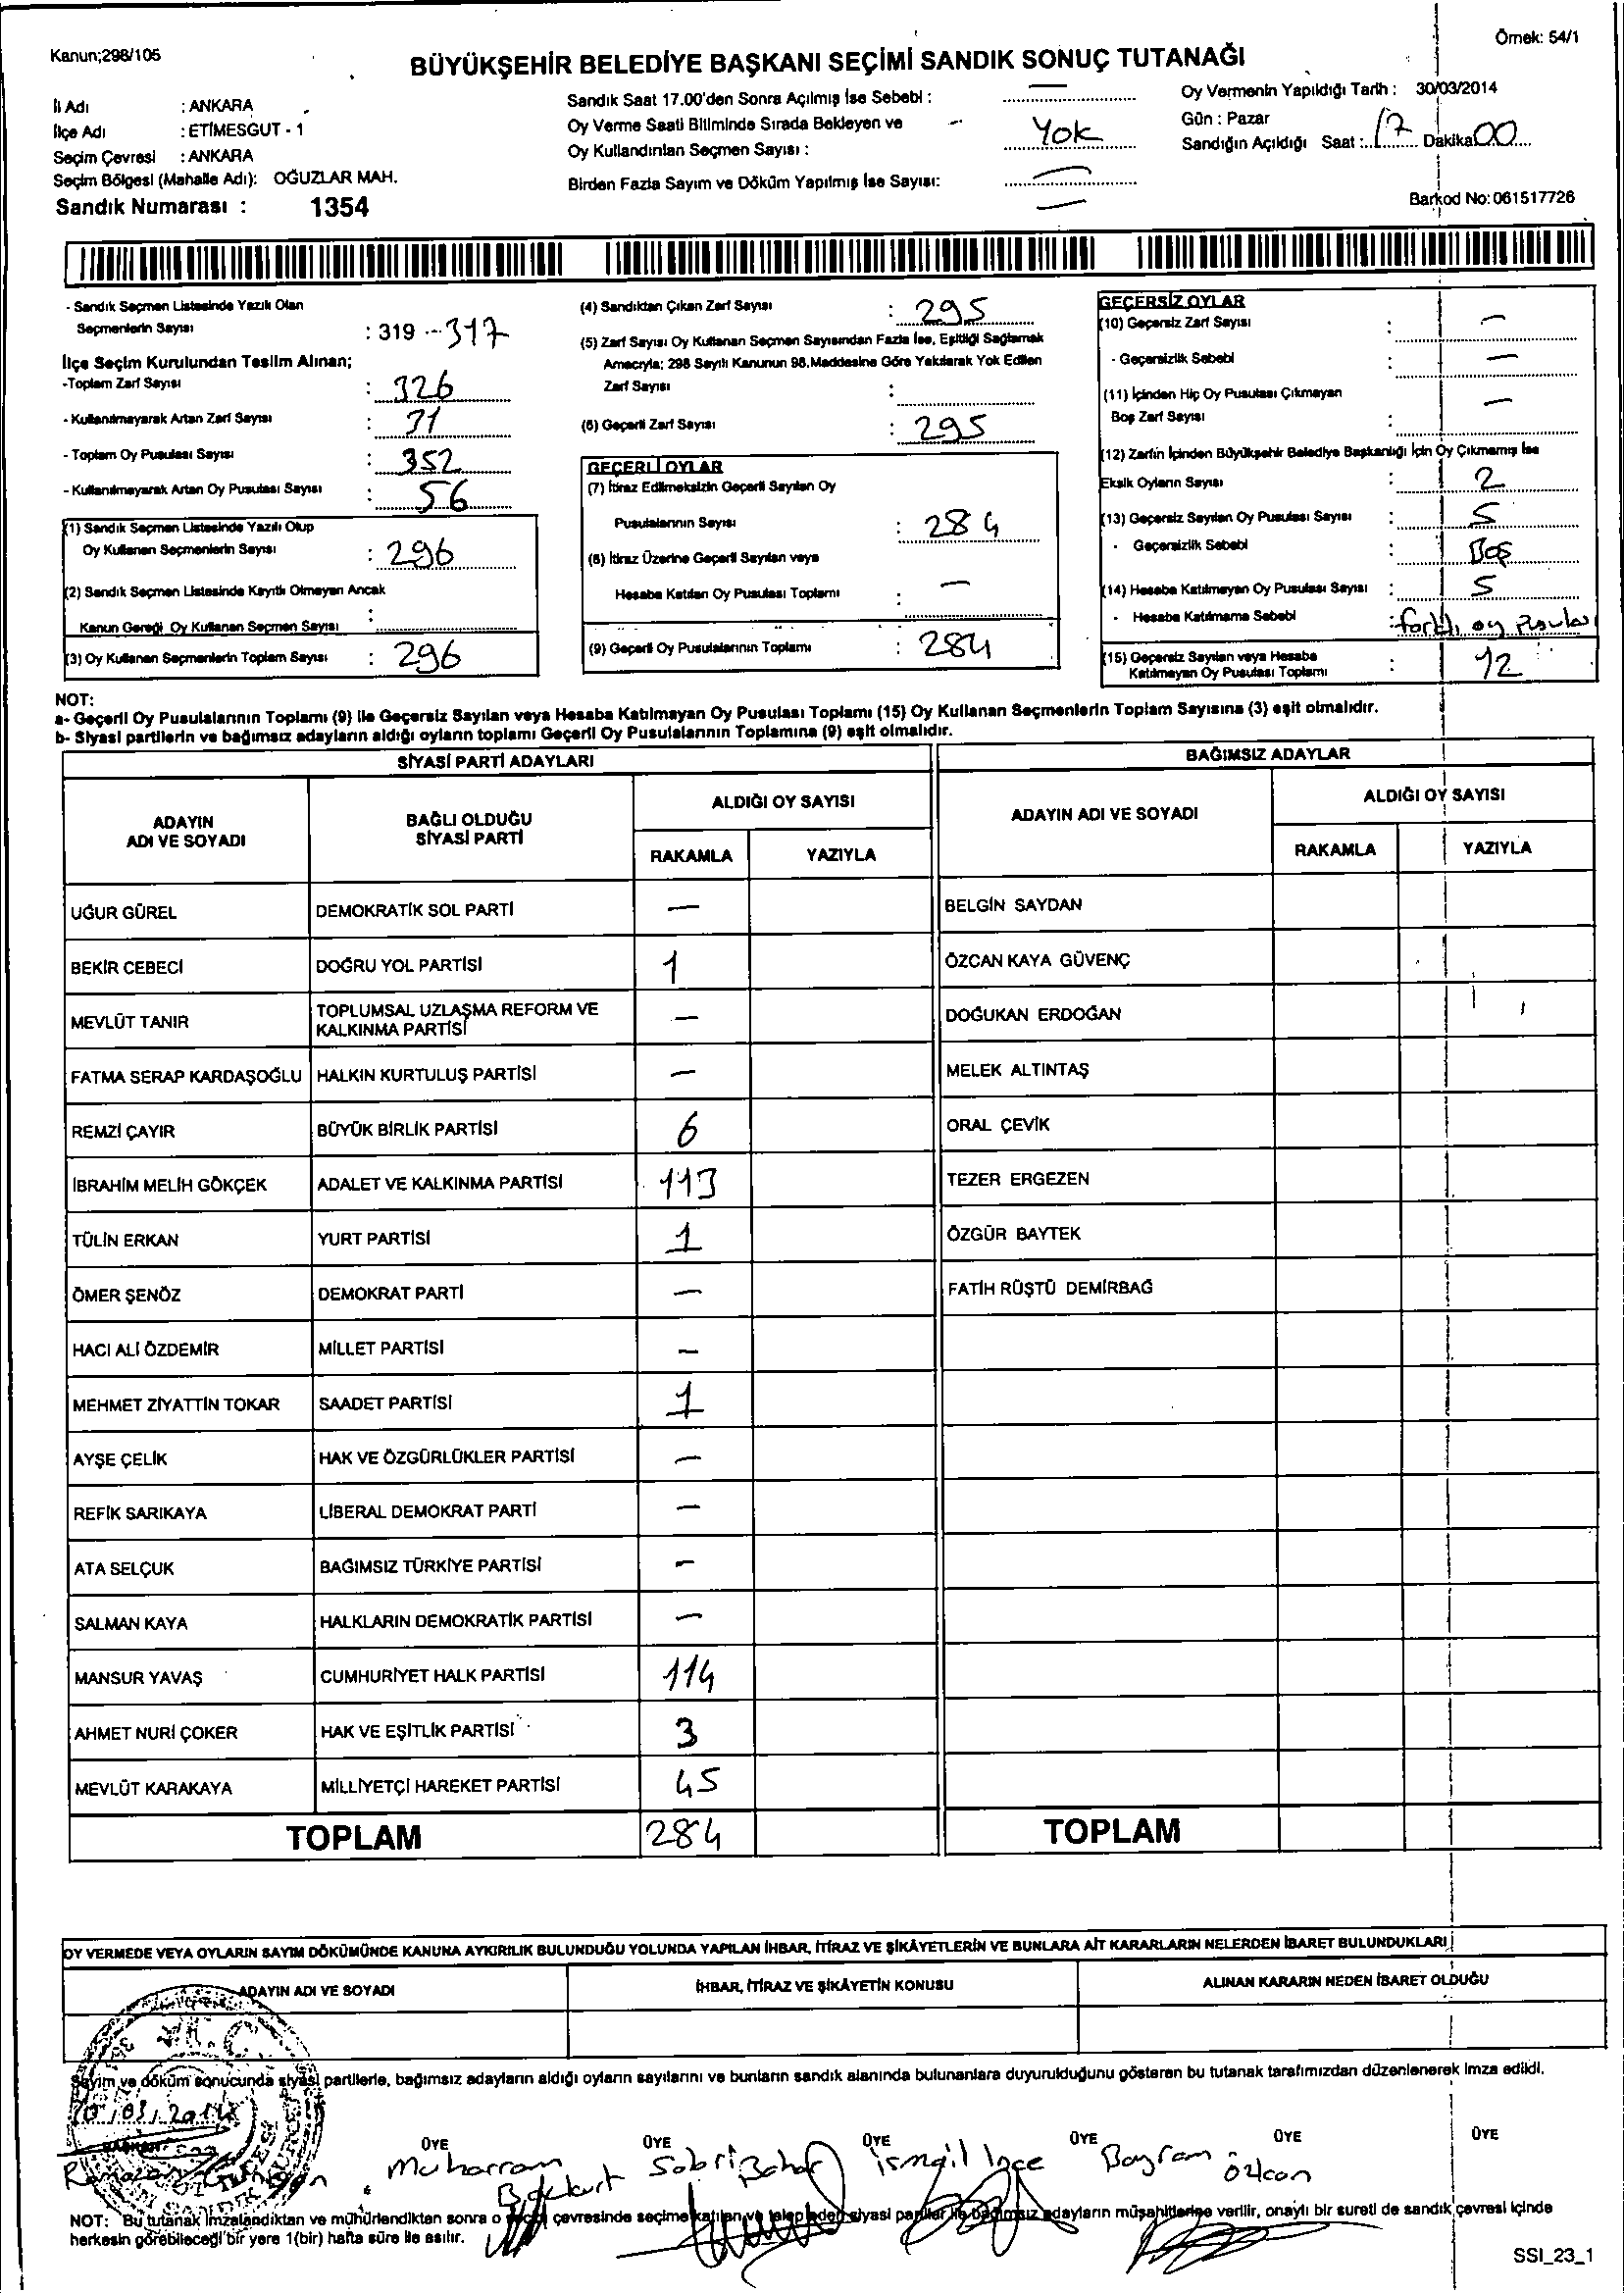 Kanun;298/105
Örnek: 54/1
BÜYÜKŞEHİR BELEDİYE BAŞKANI SEÇİMİ SANDIK SONUÇ TUTANAĞI
İl Adı : ANKARA
İlçe Adı : ETİMESGUT - 1
Seçim Çevresi : ANKARA
Seçim Bölgesi (Mahalle Adı): OĞUZLAR MAH.
Sandık Numarası : 1354
Sandık Saat 17.00'den Sonra Açılmış İse Sebebi : —
Oy Verme Saati Bitiminde Sırada Bekleyen ve
Oy Kullandırılan Seçmen Sayısı : Yok
Birden Fazla Sayım ve Döküm Yapılmış İse Sayısı: —
Oy Vermenin Yapıldığı Tarih : 30/03/2014
Gün : Pazar
Sandığın Açıldığı Saat : 17 Dakika 00
Barkod No: 061517726
- Sandık Seçmen Listesinde Yazılı Olan
Seçmenlerin Sayısı : 319 -- 317
İlçe Seçim Kurulundan Teslim Alınan;
-Toplam Zarf Sayısı : 326
- Kullanılmayarak Artan Zarf Sayısı : 31
- Toplam Oy Pusulası Sayısı : 352
- Kullanılmayarak Artan Oy Pusulası Sayısı : 56
(1) Sandık Seçmen Listesinde Yazılı Olup
Oy Kullanan Seçmenlerin Sayısı : 296
(2) Sandık Seçmen Listesinde Kayıtlı Olmayan Ancak
Kanun Gereği Oy Kullanan Seçmen Sayısı :
(3) Oy Kullanan Seçmenlerin Toplam Sayısı : 296
(4) Sandıktan Çıkan Zarf Sayısı : 295
(5) Zarf Sayısı Oy Kullanan Seçmen Sayısından Fazla İse, Eşitliği Sağlamak
Amacıyla; 298 Sayılı Kanunun 98.Maddesine Göre Yakılarak Yok Edilen
Zarf Sayısı :
(6) Geçerli Zarf Sayısı : 295
GEÇERLİ OYLAR
(7) İtiraz Edilmeksizin Geçerli Sayılan Oy
Pusulalarının Sayısı : 284
(8) İtiraz Üzerine Geçerli Sayılan veya
Hesaba Katılan Oy Pusulası Toplamı : —
(9) Geçerli Oy Pusulalarının Toplamı : 284
GEÇERSİZ OYLAR
(10) Geçersiz Zarf Sayısı : —
- Geçersizlik Sebebi : —
(11) İçinden Hiç Oy Pusulası Çıkmayan
Boş Zarf Sayısı : —
(12) Zarfın İçinden Büyükşehir Belediye Başkanlığı İçin Oy Çıkmamış İse
Eksik Oyların Sayısı : 2
(13) Geçersiz Sayılan Oy Pusulası Sayısı : 5
- Geçersizlik Sebebi : Boş
(14) Hesaba Katılmayan Oy Pusulası Sayısı : 5
- Hesaba Katılmama Sebebi : farklı oy Pusulası
(15) Geçersiz Sayılan veya Hesaba
Katılmayan Oy Pusulası Toplamı : 12
NOT:
a- Geçerli Oy Pusulalarının Toplamı (9) ile Geçersiz Sayılan veya Hesaba Katılmayan Oy Pusulası Toplamı (15) Oy Kullanan Seçmenlerin Toplam Sayısına (3) eşit olmalıdır.
b- Siyasi partilerin ve bağımsız adayların aldığı oyların toplamı Geçerli Oy Pusulalarının Toplamına (9) eşit olmalıdır.
SİYASİ PARTİ ADAYLARI
BAĞIMSIZ ADAYLAR
ADAYIN ADI VE SOYADI
BAĞLI OLDUĞU SİYASİ PARTİ
ALDIĞI OY SAYISI
RAKAMLA YAZIYLA
ADAYIN ADI VE SOYADI
ALDIĞI OY SAYISI
RAKAMLA YAZIYLA
UĞUR GÜREL DEMOKRATİK SOL PARTİ — BELGİN SAYDAN
BEKİR CEBECİ DOĞRU YOL PARTİSİ 1 ÖZCAN KAYA GÜVENÇ
MEVLÜT TANIR TOPLUMSAL UZLAŞMA REFORM VE KALKINMA PARTİSİ — DOĞUKAN ERDOĞAN
FATMA SERAP KARDAŞOĞLU HALKIN KURTULUŞ PARTİSİ — MELEK ALTINTAŞ
REMZİ ÇAYIR BÜYÜK BİRLİK PARTİSİ 6 ORAL ÇEVİK
İBRAHİM MELİH GÖKÇEK ADALET VE KALKINMA PARTİSİ 113 TEZER ERGEZEN
TÜLİN ERKAN YURT PARTİSİ 1 ÖZGÜR BAYTEK
ÖMER ŞENÖZ DEMOKRAT PARTİ — FATİH RÜŞTÜ DEMİRBAĞ
HACI ALİ ÖZDEMİR MİLLET PARTİSİ —
MEHMET ZİYATTİN TOKAR SAADET PARTİSİ 1
AYŞE ÇELİK HAK VE ÖZGÜRLÜKLER PARTİSİ —
REFİK SARIKAYA LİBERAL DEMOKRAT PARTİ —
ATA SELÇUK BAĞIMSIZ TÜRKİYE PARTİSİ —
SALMAN KAYA HALKLARIN DEMOKRATİK PARTİSİ —
MANSUR YAVAŞ CUMHURİYET HALK PARTİSİ 114
AHMET NURİ ÇOKER HAK VE EŞİTLİK PARTİSİ 3
MEVLÜT KARAKAYA MİLLİYETÇİ HAREKET PARTİSİ 45
TOPLAM 284 TOPLAM
OY VERMEDE VEYA OYLARIN SAYIM DÖKÜMÜNDE KANUNA AYKIRILIK BULUNDUĞU YOLUNDA YAPILAN İHBAR, İTİRAZ VE ŞİKÂYETLERİN VE BUNLARA AİT KARARLARIN NELERDEN İBARET BULUNDUKLARI
ADAYIN ADI VE SOYADI İHBAR, İTİRAZ VE ŞİKÂYETİN KONUSU ALINAN KARARIN NEDEN İBARET OLDUĞU
T.C.
Sayım ve döküm sonucunda siyasi partilerle, bağımsız adayların aldığı oyların sayılarını ve bunların sandık alanında bulunanlara duyurulduğunu gösteren bu tutanak tarafımızdan düzenlenerek imza edildi.
30/03/2014
BAŞKAN ÜYE ÜYE ÜYE ÜYE ÜYE ÜYE
Ramazan Muharrem Sabri Bahar İsmail İnce Bayram Özcan
NOT: Bu tutanak imzalandıktan ve mühürlendikten sonra o seçim çevresinde seçime katılan ve talep eden siyasi partiler ile bağımsız adayların müşahitlerine verilir, onaylı bir sureti de sandık çevresi içinde
herkesin görebileceği bir yere 1(bir) hafta süre ile asılır.
SSI_23_1